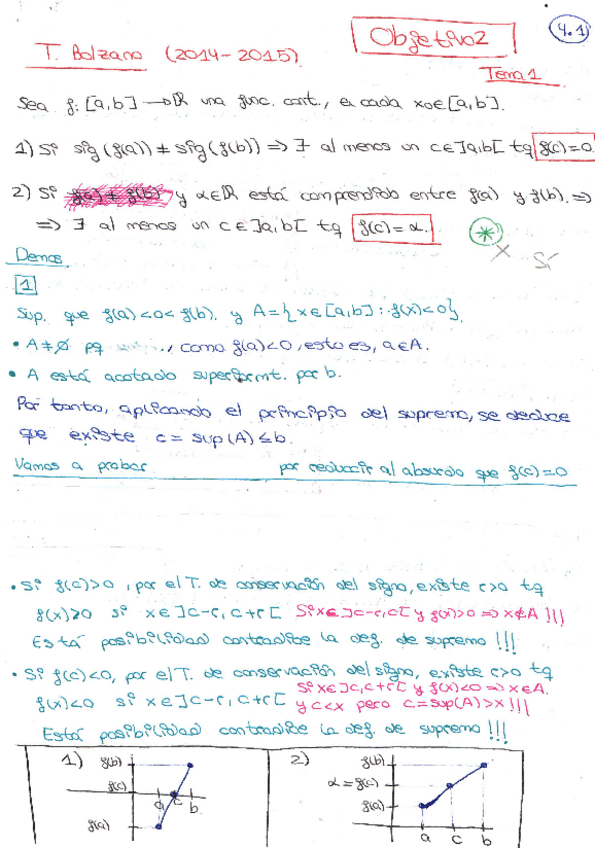 Objetivo 2
4.1
T. Bolzano (2014-2015)
Tema 1
Sea f: [a,b] → ℝ una func. cont., en cada x₀∈[a,b].
1) Si sig(f(a)) ≠ sig(f(b)) => ∃ al menos un c∈]a,b[ tq f(c)=0.
2) Si y α∈ℝ está comprendido entre f(a) y f(b). =>
=> ∃ al menos un c∈]a,b[ tq f(c)=α. *
x Sí
Demos.
1
Sup. que f(a)<0<f(b). y A={x∈[a,b]: f(x)<0}.
• A≠∅ pq , como f(a)<0, esto es, a∈A.
• A está acotado superiormt. por b.
Por tanto, aplicando el principio del supremo, se deduce
que existe c = sup(A) ≤ b.
Vamos a probar por reducción al absurdo que f(c)=0
• Si f(c)>0, por el T. de conservación del signo, existe r>0 tq
f(x)>0 si x∈]c-r, c+r[ Si x∈]c-r,c[ y f(x)>0 => x∉A !!!
Está posibilidad contradice la def. de supremo !!!
• Si f(c)<0, por el T. de conservación del signo, existe r>0 tq
Si x∈]c,c+r[ y f(x)<0 => x∈A.
f(x)<0 si x∈]c-r, c+r[ y c<x pero c=sup(A)>x !!!
Está posibilidad contradice la def. de supremo !!!
1) f(b)
f(c)
a c b
f(a)
2) f(b)
α = f(c)
f(a)
a c b